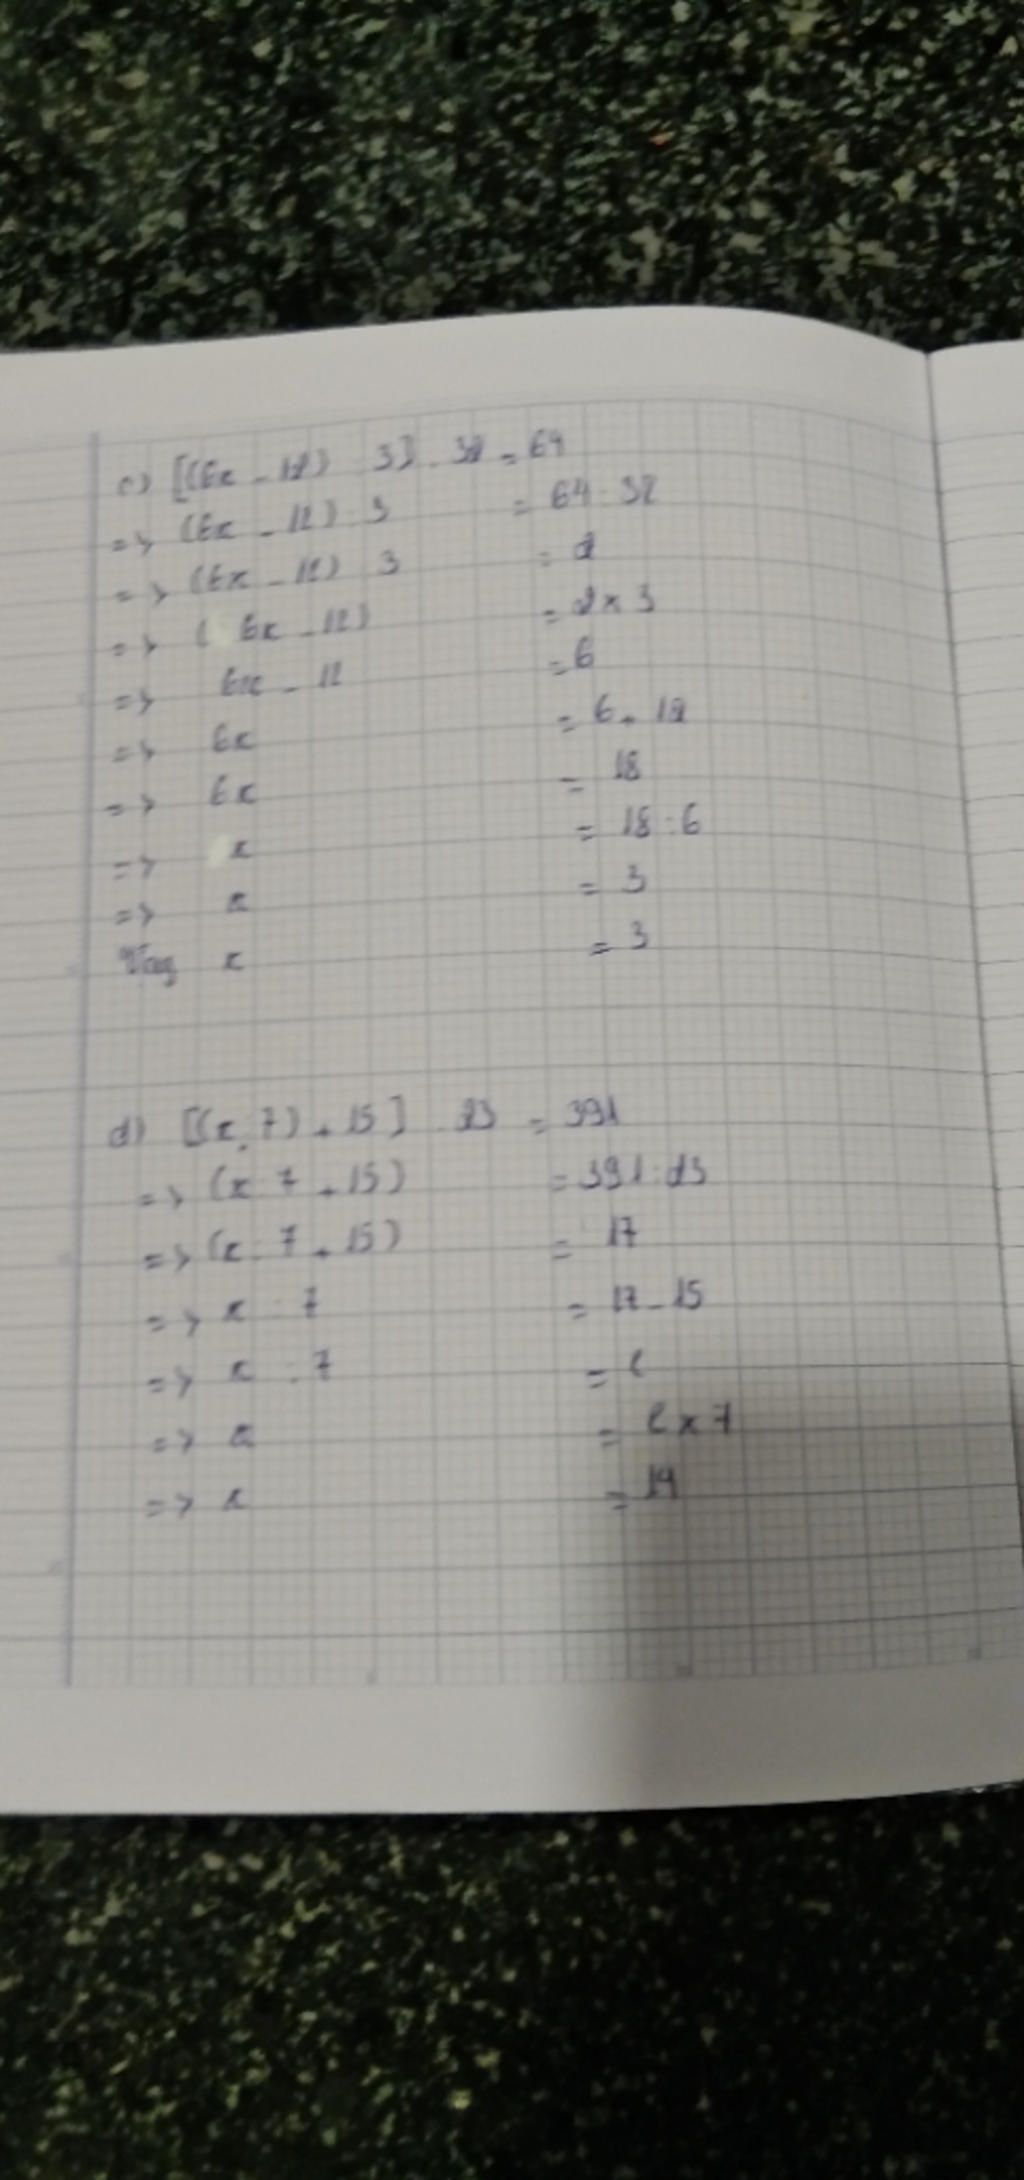 c) [(6x - 12) : 3] . 32 = 64
=> (6x - 12) : 3 = 64 : 32
=> (6x - 12) : 3 = 2
=> (6x - 12) = 2 x 3
=> 6x - 12 = 6
=> 6x = 6 + 12
=> 6x = 18
=> x = 18 : 6
=> x = 3
Vậy x = 3
d) [(x : 7) + 15] . 23 = 391
=> (x : 7 + 15) = 391 : 23
=> (x : 7 + 15) = 17
=> x : 7 = 17 - 15
=> x : 7 = 2
=> x = 2 x 7
=> x = 14